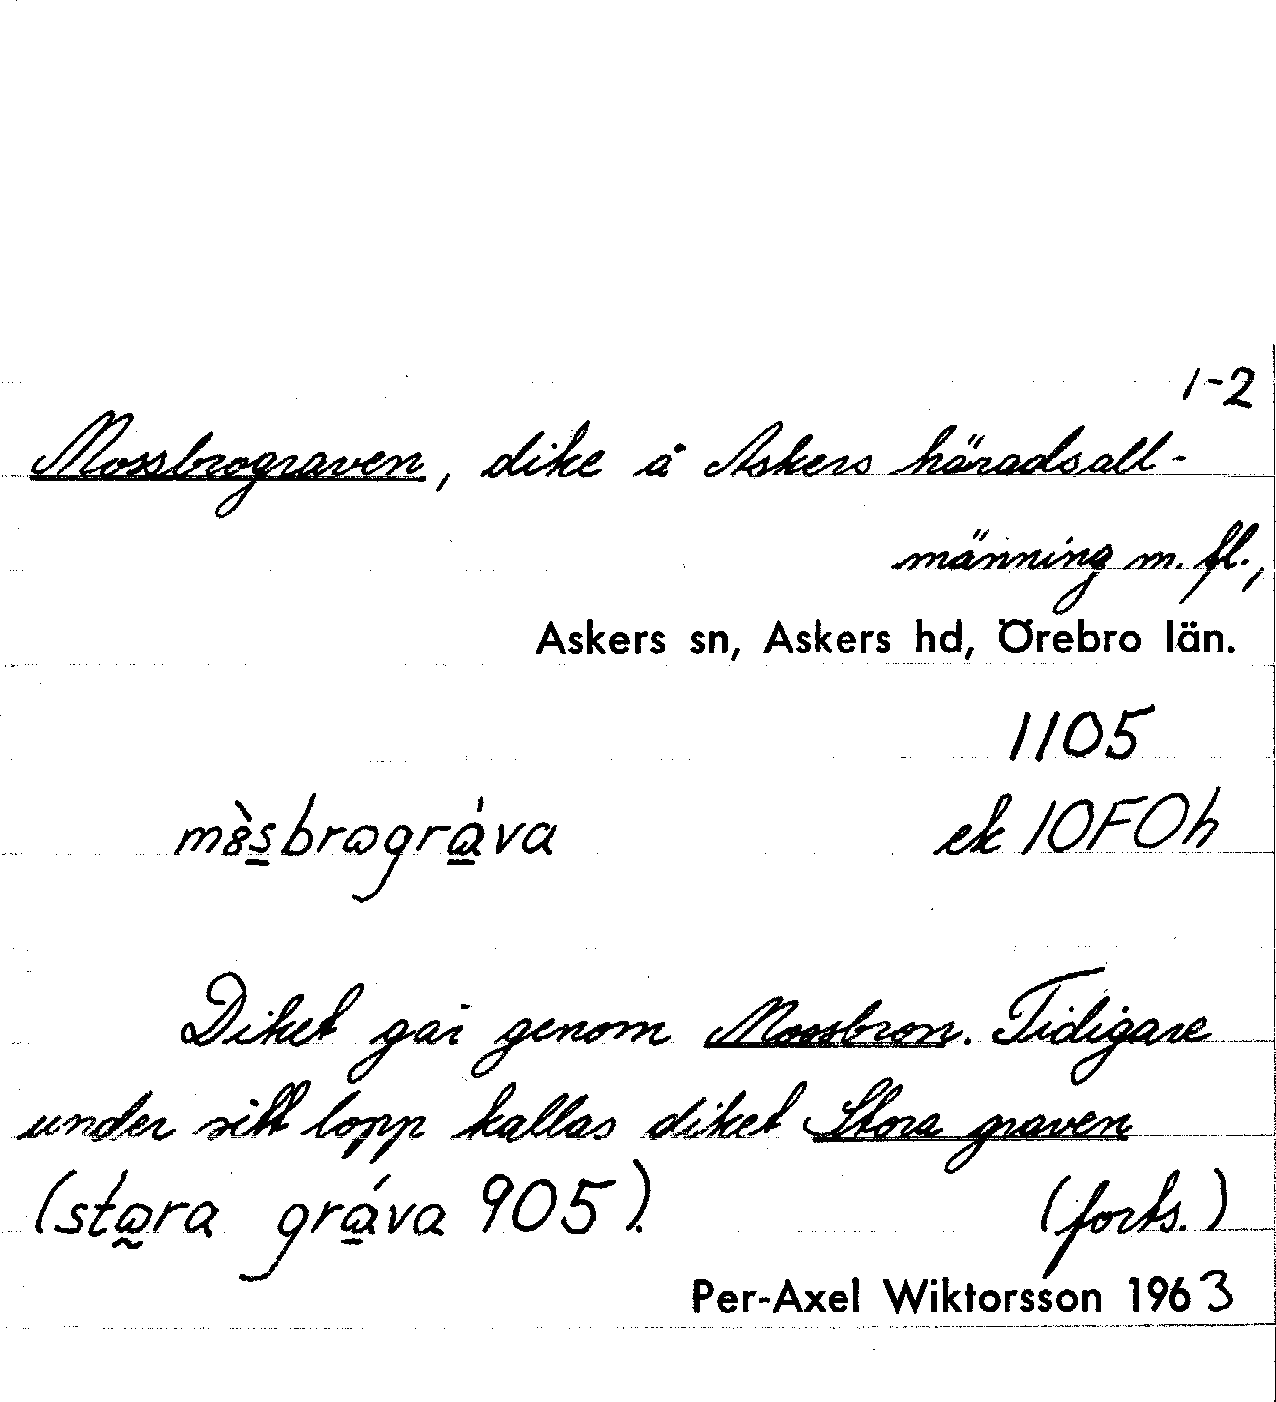 1-2
Mossbrograven, dike å Askers häradsall-
männing m. fl.,
Askers sn, Askers hd, Örebro län.
1105
ek 10F0h
Diket går genom Mossbron. Tidigare
under sitt lopp kallas diket Stora graven
(stωra grὰva 905). (forts.)
Per-Axel Wiktorsson 1963